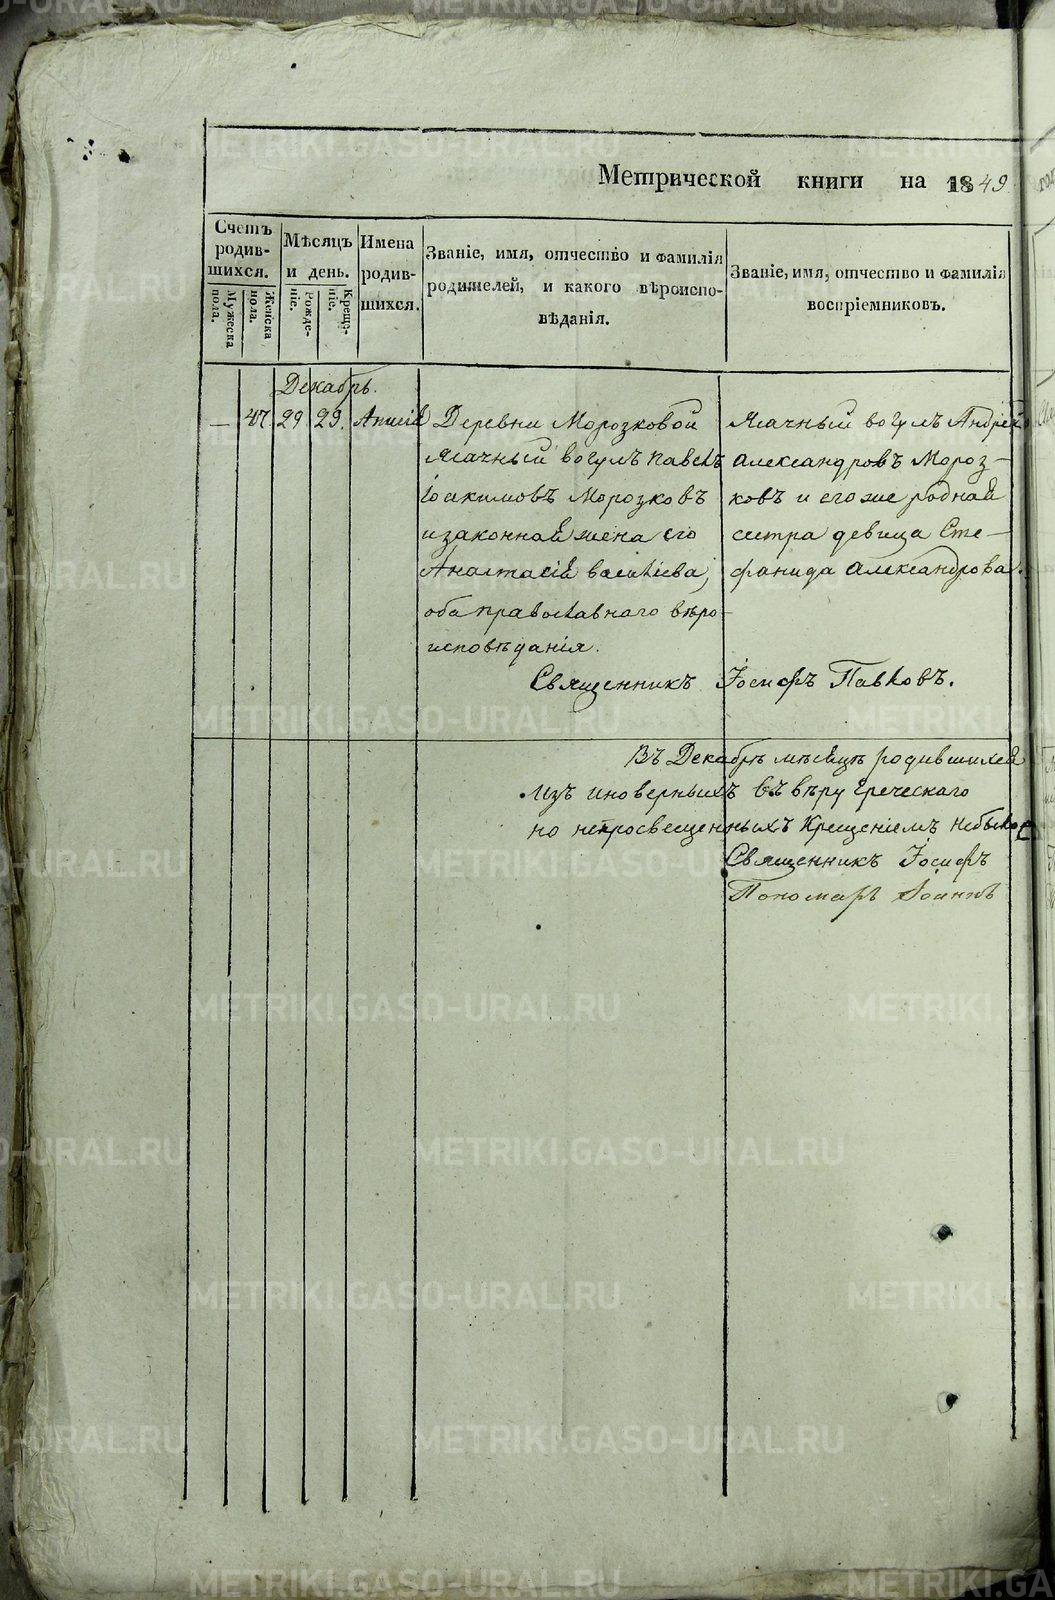 Метрической книги на 1849
Счетъ родив- шихся.
Мужеска пола.
Женска пола.
Мѣсяцъ и день.
Рожде- ніе.
Креще- ніе.
Имена родив- шихся.
Званіе, имя, отчество и фамилія
родителей, и какого вѣроиспо-
вѣданія.
Званіе, имя, отчество и фамилія
воспріемниковъ.
Декабрь.
— 47 29 29. Анисія
Деревни Морозковой
Ясачный вогулъ Павелъ
Іоакимовъ Морозковъ
и законная жена его
Анастасія Васильева,
оба православнаго вѣро-
исповѣданія.
Ясачный вогулъ Андрей
Александровъ Мороз-
ковъ и его же родная
сестра девица Сте-
фанида Александрова.
Священникъ Іосифъ Павловъ.
Въ Декабрѣ мѣсяцѣ родившихся
изъ иноверныхъ въ вѣру Греческаго
но непросвещенныхъ Крещеніемъ небыло
Священникъ Іосифъ
Пономарь Іоаннъ
METRIKI.GASO-URAL.RU